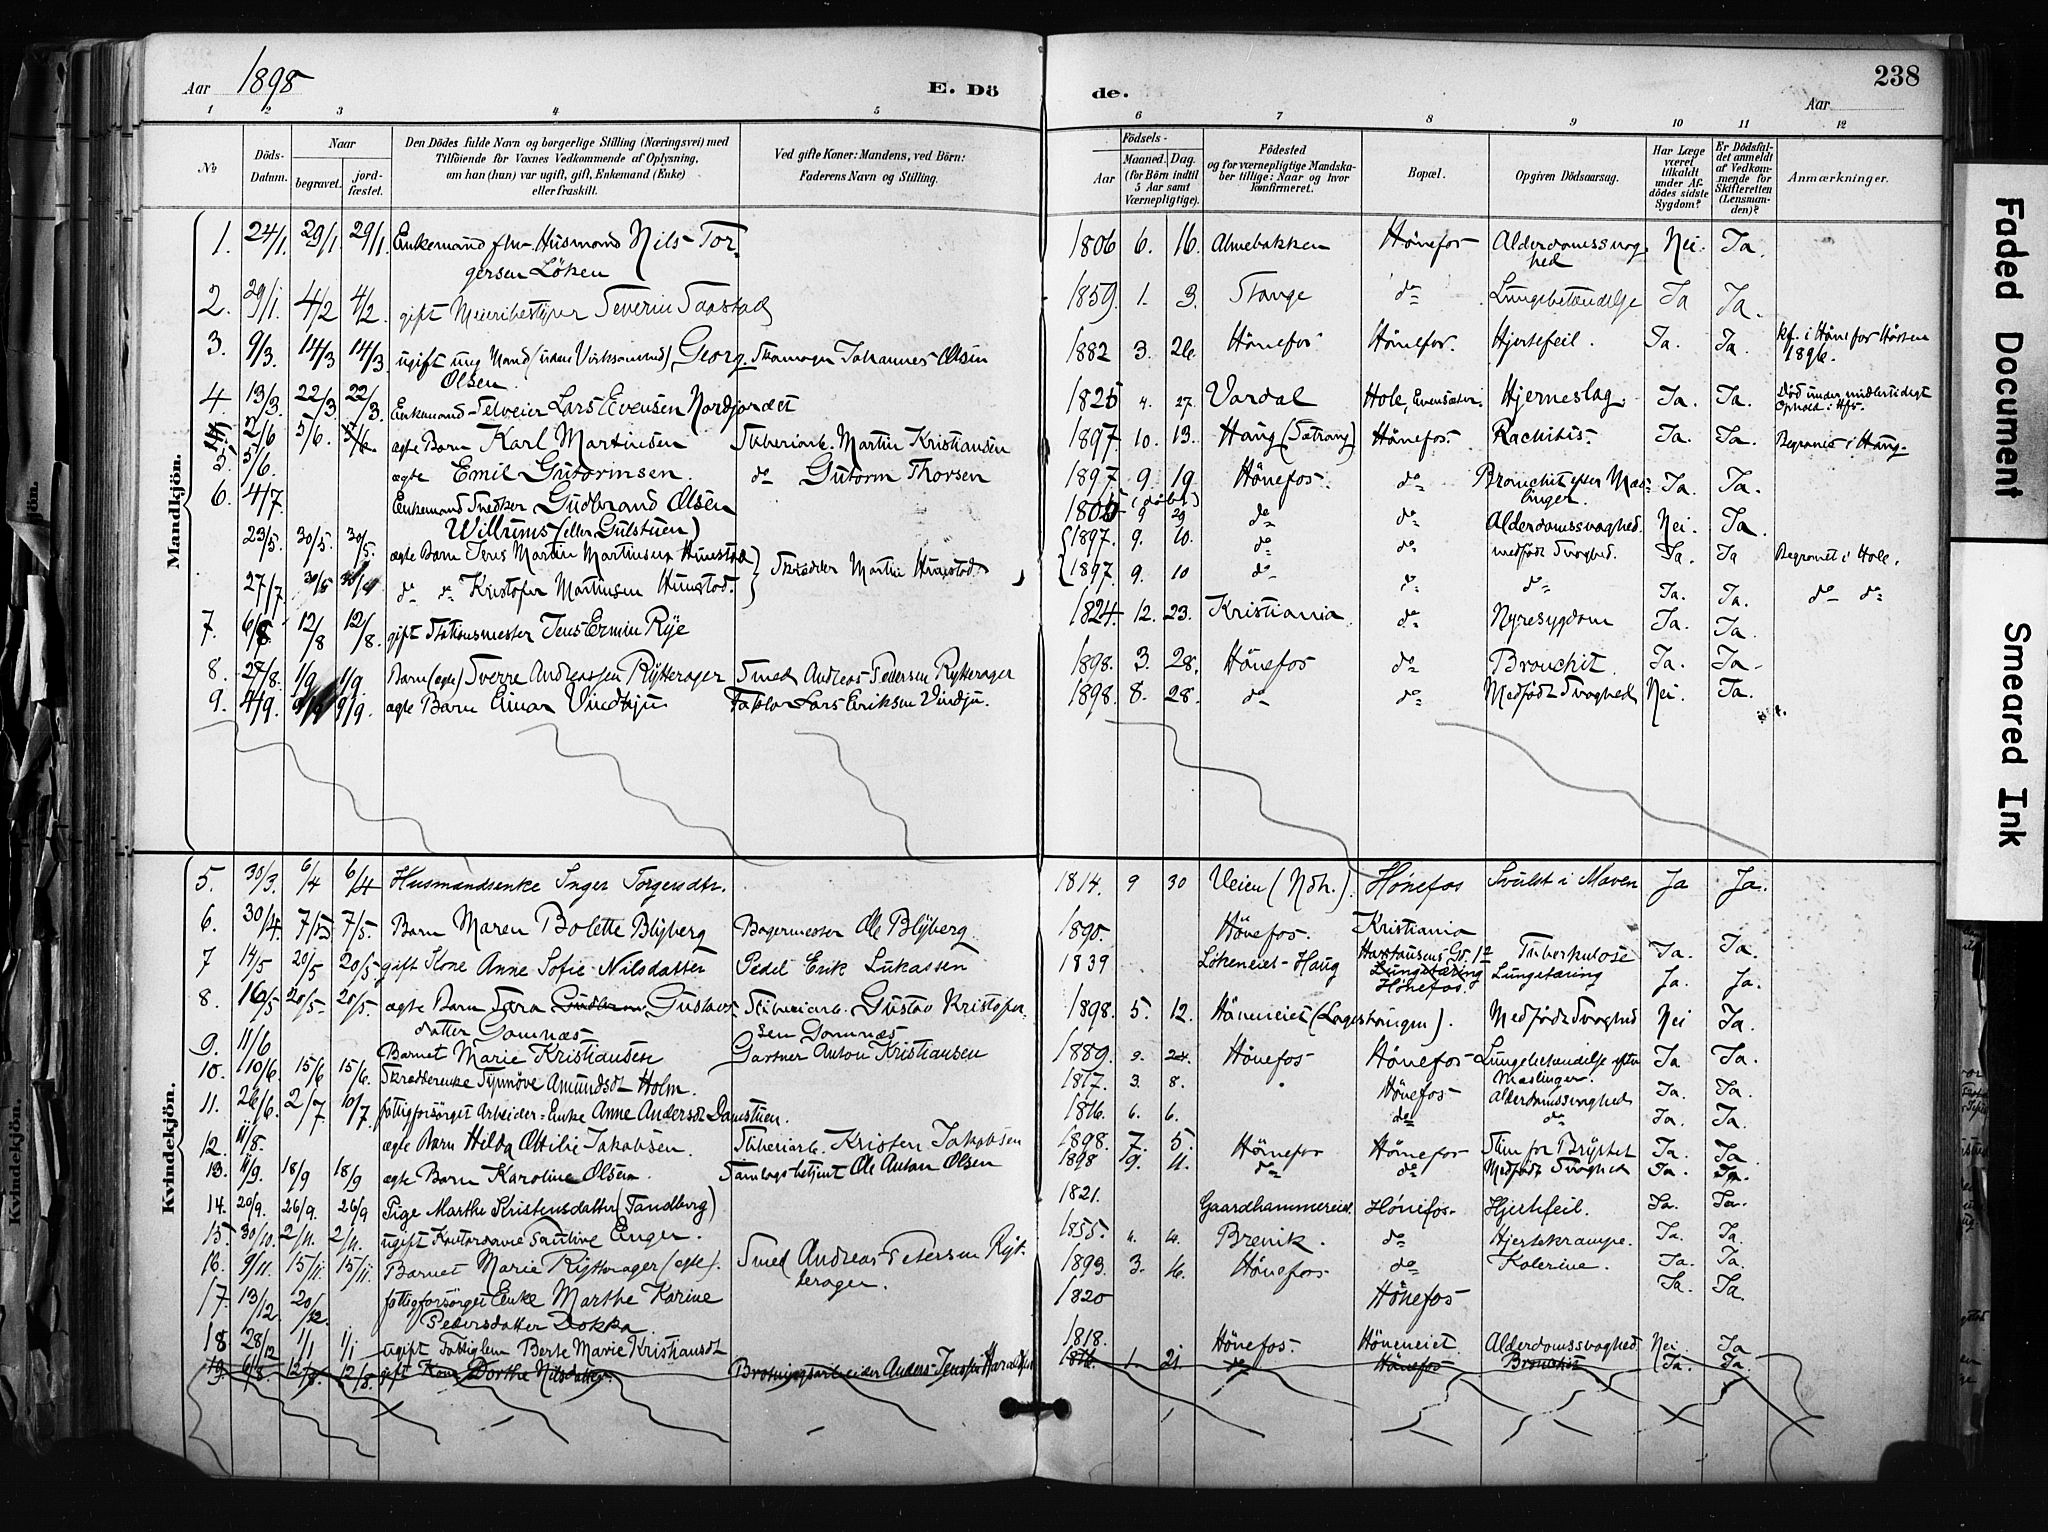 Aar 1898
E. Dö
de.
238
Aar
1 2 3 4 5 6 7 8 9 10 11 12
No
Döds-Datum.
Naar
begravet.
jord-fæstet.
Den Dödes fulde Navn og borgerlige Stilling (Næringsvei) med
Tilföiende for Voxnes Vedkommende af Oplysning,
om han (hun) var ugift, gift, Enkemand (Enke)
eller fraskilt.
Ved gifte Koner: Mandens, ved Börn:
Faderens Navn og Stilling.
Födsels-
Aar
Maaned. Dag.
(for Börn indtil
5 Aar samt
Værnepligtige).
Födested
og for værnepligtige Mandska-
ber tillige: Naar og hvor
konfirmeret.
Bopæl.
Opgiven Dödsaarsag.
Har Læge
været
tilkaldt
under Af-
dödes sidste
Sygdom?
Er Dödsfal-
det anmeldt
af Vedkom-
mende for
Skifteretten
(Lensman-
den)?
Anmærkninger.
Mandkjön.
1. 24/1. 29/1. 29/1. Enkemand fhv. Husmand Nils Tor- 1806 6. 16. Almebakken Hönefos Alderdomssvag- Nei. Ja.
gersen Löken hed
2. 29/1. 4/2 4/2. gift Meieribestyrer Severin Saastad 1859. 1. 3. Stange do Lungebetændelse Ja Ja.
3. 9/3. 14/3 14/3. ugift ung Mand (uden Virksomhed) Georg Skomager Johannes Olsen 1882 3. 26. Hönefos Hönefos. Hjertefeil. Ja. Ja. kf. i Hönefos Hösten
Olsen. 1896.
4. 13/3. 22/3. 22/3. Enkemand Selveier Lars Evensen Nordjordet 1825 4. 27. Vardal Hole, Hjerneslag. Ja. Ja. Död under midlertidigt
Ophold i Hfs.
2/6 5/6. 5/6. ægte Barn Karl Martinsen Sliberiarb. Martin Kristiansen 1897 10. 13. Haug (Satrang) Hönefos. Rachitis. Ja. Ja. Begravet i Haug.
5. 5/6. ægte Emil Gutormsen do Gutorm Thorsen 1897 9. 19. Hönefos. do Bronchit efter Mæs- Ja. Ja.
linger.
6. 4/7. Enkemand Snedker Gudbrand Olsen 1805 (döbt) 9 29 do do Alderdomssvaghed. Nei. Ja.
Willrums (eller Gulstuen)
23/5. 30/5. 30/5. ægte Barn Jens Martin Martinsen Hunstad Skrædder Martin Hunstad 1897. 9. 10. do do medfödt Svaghed. Ja. Ja Begravet i Hole.
27/7. 30/5 do do Kristofer Martinsen Hunstad. 1897. 9. 10 do do do Ja. Ja. do do
7. 6/8 12/8 12/8. gift Stationsmester Jens Ermin Rye 1824 12. 23. Kristiania do Nyresygdom Ja. Ja.
8. 27/8. 1/9 1/9. Barn (ægte) Sverre Andreassen Rytterager Smed Andreas Pedersen Rytterager 1898. 3. 28. Hönefos do Bronchit. Ja. Ja.
9. 4/9. 9/9. ægte Barn Einar Vindhju Lars Eriksen Vindju. 1898. 8. 28. do do Medfödt Svaghed Nei. Ja.
Kvindekjön.
5. 30/3. 6/4 6/4 Husmandsenke Inger Torgersdtr. 1814. 9 30 Veien (Ndh.). Hönefos Svulst i Maven Ja Ja.
6. 30/4. 7/5 7/5. Barn Maren Bolette Blyberg Bagermester Ole Blyberg. 1890. Hönefos. Kristiania
7 14/5 20/5 20/5 gift Kone Anne Sofie Nilsdatter Pedel Erik Lukassen 1839 Lökeneiet-Haug Tuberkulose Ja. Ja.
Lungetæring Lungetæring Ja. Ja.
Hönefos.
8. 16/5 20/5 20/5. ægte Barn Gustavs- Sliberiarb. Gustav Kristofer- 1898. 5. 12. Höneneiet (Lagestangen). Medfödt Svaghed Nei Ja.
datter Gomnæs sen Gomnæs
9. 11/6 Barnet Marie Kristiansen Gartner Anton Kristiansen 1889. 24. Hönefos Hönefos Lungebetændelse efter Ja Ja.
Mæslinger.
10. 10/6. 15/6 15/6. Skrædderenke Synnöve Amundsdt Holm. 1817. 3. 8. Hönefos Alderdomssvaghed Ja. Ja.
11. 26/6. 2/7. 10/7 fattigforsörget Arbeider-Enke Anne Andersdt Damstuen. 1816. 6. 6. do do Ja. Ja.
12. 11/8. ægte Barn Hilda Ottilie Jakobsen. Sliberiarb. Kristen Jakobsen 1898. 7. 5. Hönefos Hönefos Slim for Brystet Ja. Ja.
13. 11/9. 18/9 18/9 ægte Barn Karoline Olsen. Samlagsbetjent Ole Anton Olsen 1898 9. 11. do do Medfödt Svaghed Ja. Ja.
14. 20/9. 26/9. 26/9 Pige Marthe Kristensdatter (Tandberg) 1821. Gaardhammereiet Hönefos. Hjertefeil. Ja. Ja.
15. 30/10. 2/11. 2/11. ugift Enger. 1855. Brevik. do Hjertekrampe. Ja. Ja.
16. 9/11. 15/11. 15/11. Barnet Marie Rytterager (ægte). Smed Andreas Petersen Ryt- 1893. 3. 16. Hönefos. do Kolerine. Ja. Ja.
terager.
17. 13/12. 20/12. fattigforsörget Enke Marthe Karine 1820 Hönefos Ja. Ja.
Pedersdatter Dokka
18 28/12 1/1 1/1 ugift Fattiglem Berte Marie Kristiansdt 1818. Hönefos. Höneneiet. Alderdomssvaghed Nei Ja
19. 6/8 12/8. 12/8. gift Kone Dorthe Nilsdatter. Anders Jensen 1816. 1. 21. do Hönefos Bronchit Ja. Ja.
Faded Document
Smeared Ink
Kvindekjön.